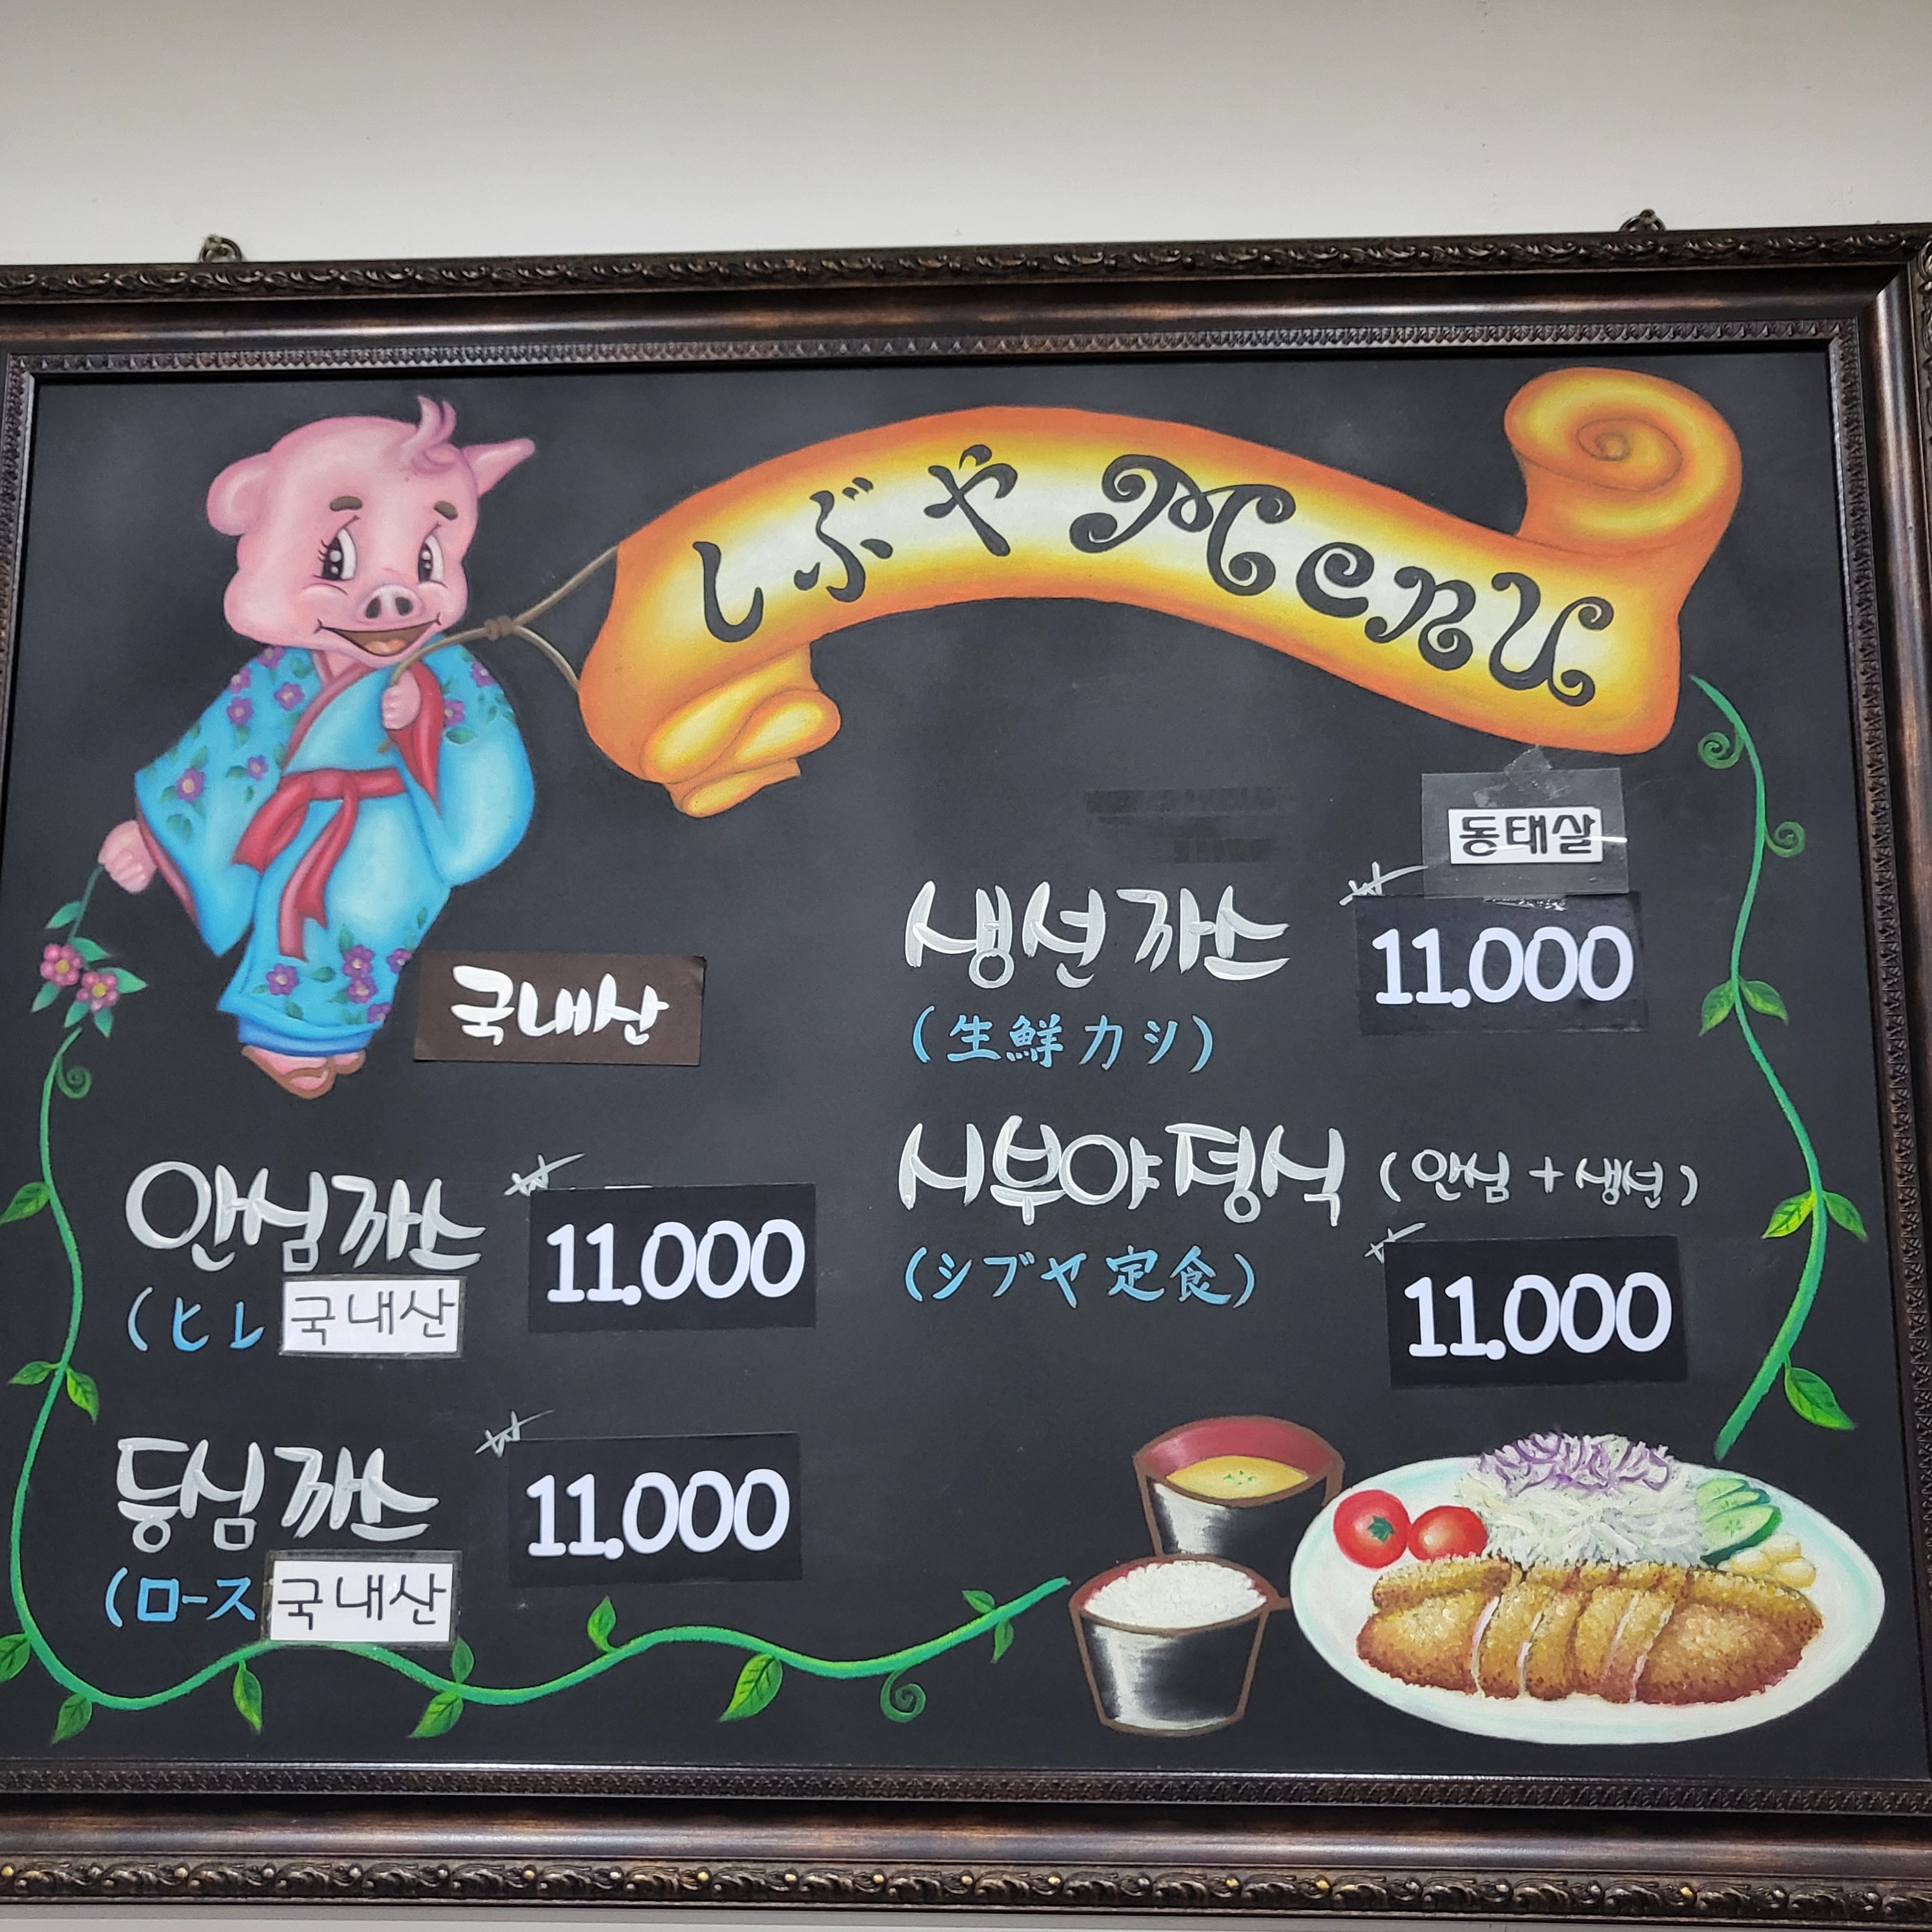 しぶや Menu
국내산
안심까스 ₩ 11.000
(ヒレ 국내산
등심까스 ₩ 11.000
(ロース 국내산
동태살
생선까스 ₩ 11.000
(生鮮カシ)
시부야정식 (안심 + 생선)
₩ 11.000
(シブヤ定食)